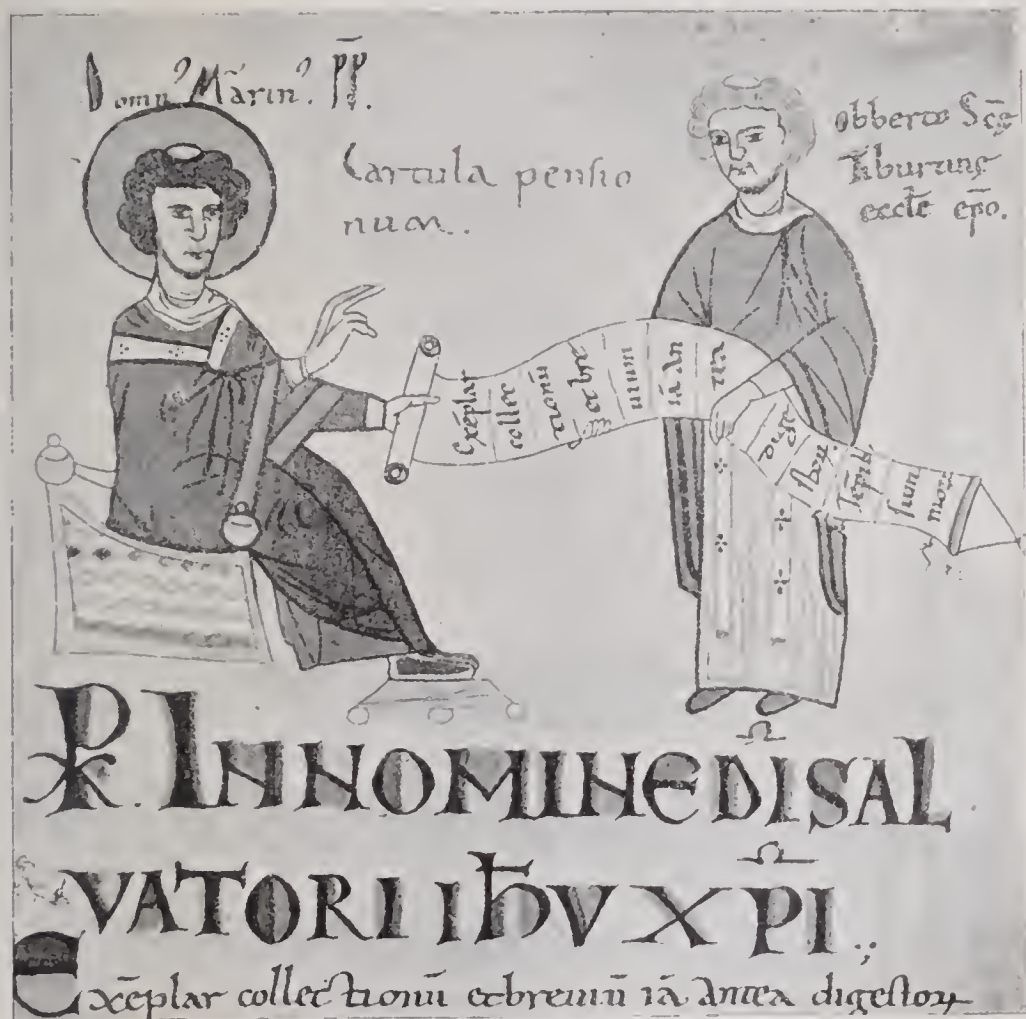 Domn' Marin' p̄p̄.
Cartula pensio
num..
obberto Sc̄ę
Tiburtinę
eccłe ep̄o.
Exēplar
collec
tionū
et bre
uium
iā an
tea
dige
stoꝝ
tēpib;
sum
moꝝ
☧. IN NOMINE D̄I SAL
VATORI IħV XP̄I
Exēplar collectionū et breuiū iā antea digestoꝝ